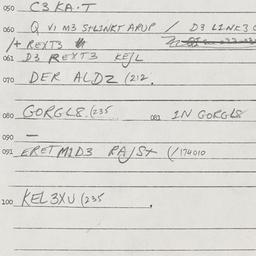 050 C3 KA·T
060 Q VI M3 STLINKT ARUP / D3 LINK3
/+ REXT3
061 D3 REXT3 KE/L
070 DER ALDZ (212.
080 GORGL8.(235 081 IN GORGL8
090 —
091 ERETM1D3 RA/St (/174010
100 KEL3XU (235 .